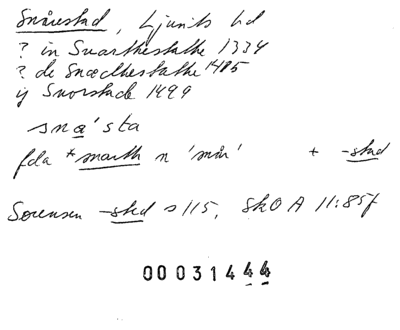 Snårestad, Ljunits hd
? in Snarthestathe 1334
? de Snædhestathe 1485
ij Snorstade 1499
snα´sta
fda *snarth n 'snår' + -stad
Sørensen -sted s 115, SkO A 11:85f
00031444